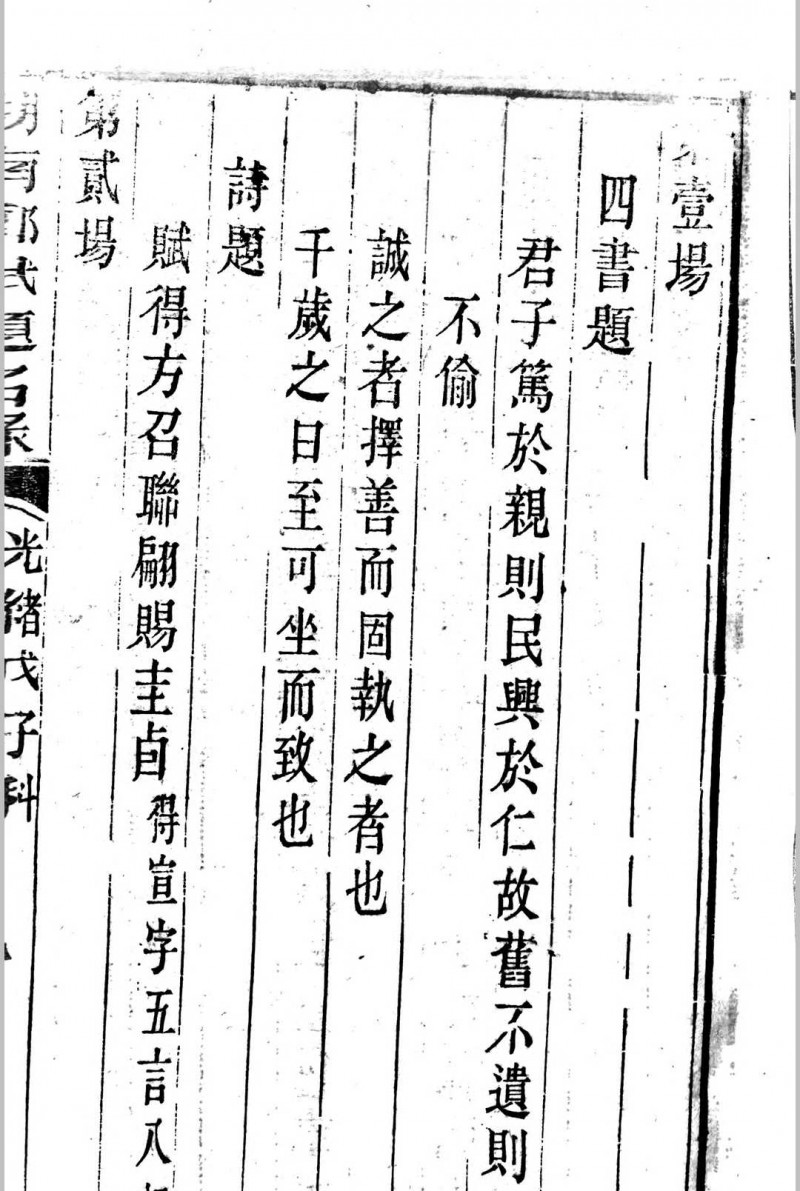 壹場
四書題
君子篤於親則民興於仁故舊不遺則
不偷
誠之者擇善而固執之者也
千歲之日至可坐而致也
詩題
賦得方召聯翩賜圭卣得宣字五言八
第貳場
試題名錄 光緒戊子科